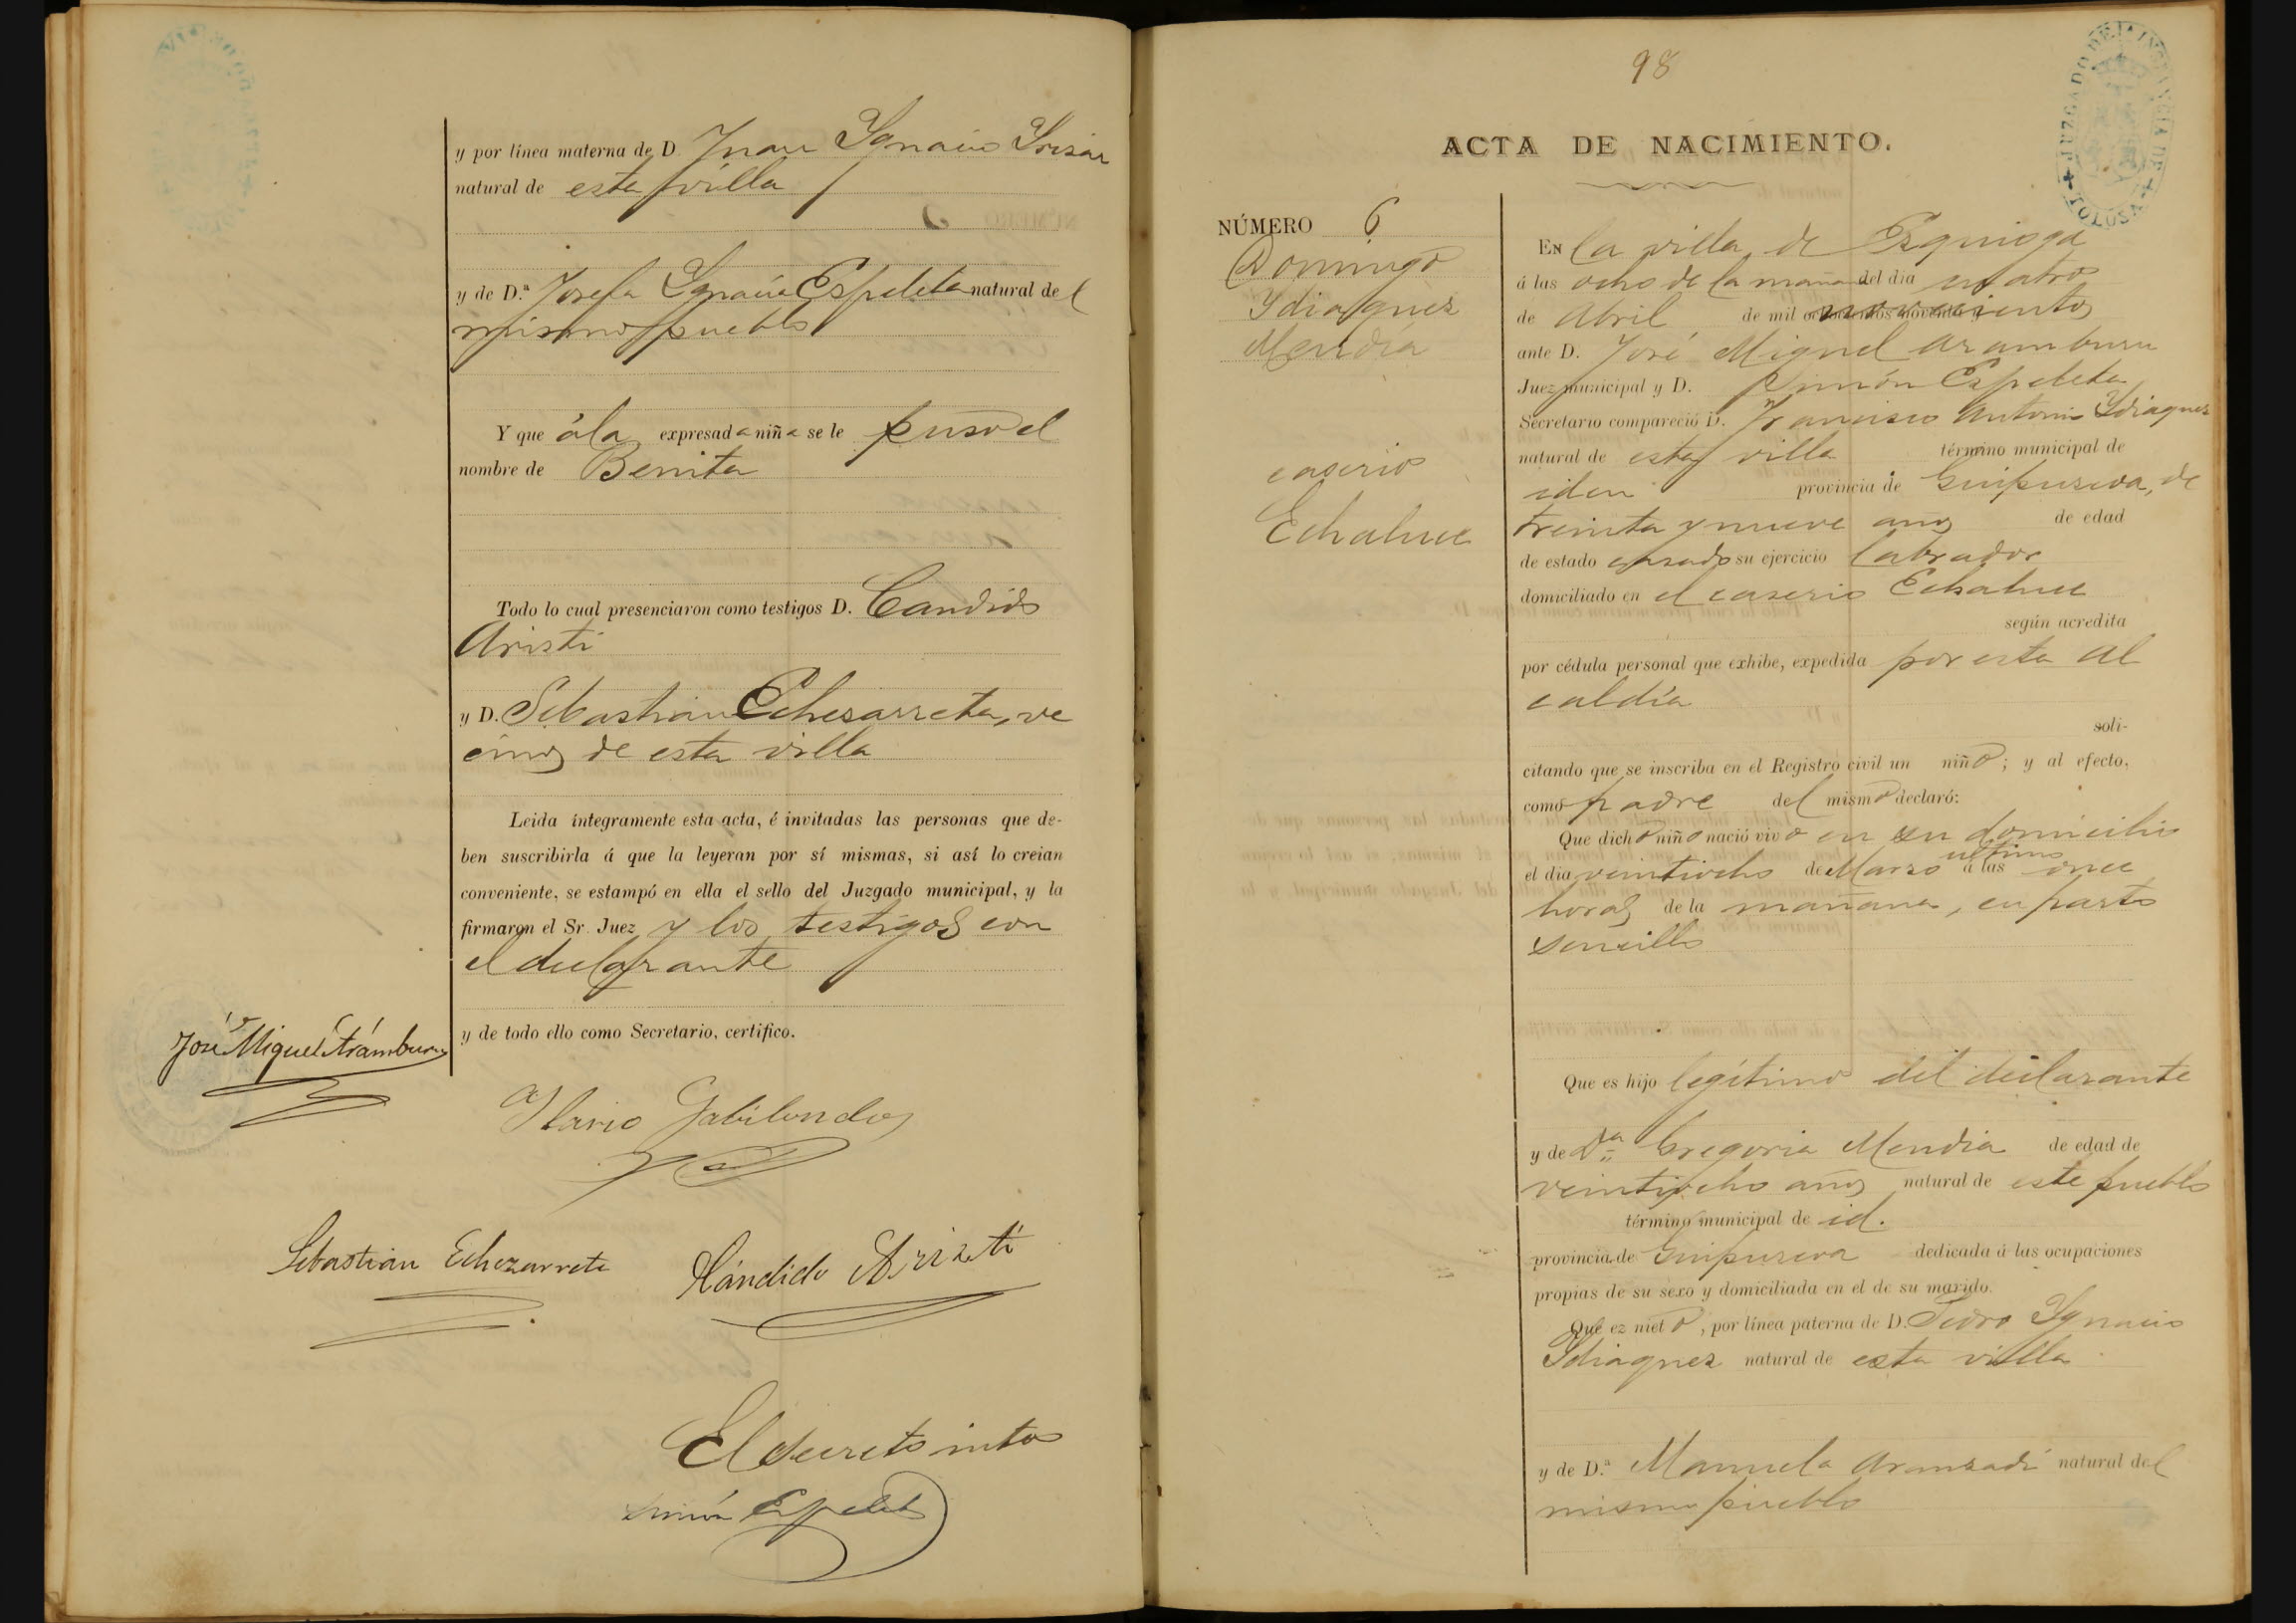 y por línea materna de D. Juan Ygnacio Yrizar
natural de esta villa
y de D.ª Josefa Ygnacia Espeleta natural del
mismo pueblo
Y que á la expresada niña se le puso el
nombre de Benita
Todo lo cual presenciaron como testigos D. Candido
Aristi
y D. Sebastian Echezarreta, ve
cinos de esta villa
Leida íntegramente esta acta, é invitadas las personas que de-
ben suscribirla á que la leyeran por sí mismas, si así lo creían
conveniente, se estampó en ella el sello del Juzgado municipal, y la
firmaron el Sr. Juez y los testigos con
el declarante
y de todo ello como Secretario, certifico.
José Miguel Arámburu
Ylario Gabilondo
Sebastian Echezarreta Cándido Arizti
El Secretº intº
Simón Espeleta
98
JUZGADO DE 1ª INSTANCIA DE TOLOSA
ACTA DE NACIMIENTO.
NÚMERO 6
Domingo
Ydiaquez
Mendia
caserio
Echaluce
En la villa de Ezquioga
á las ocho de la mañana del dia cuatro
de Abril de mil novecientos
ante D. José Miguel Aramburu
Juez municipal y D. Simón Espeleta
Secretario compareció D. Francisco Antonio Ydiaquez
natural de esta villa término municipal de
idem provincia de Guipuzcoa, de
treinta y nueve años de edad
de estado casado su ejercicio labrador
domiciliado en el caserio Echaluce
según acredita
por cédula personal que exhibe, expedida por esta Al
caldía
soli-
citando que se inscriba en el Registro civil un niño; y al efecto,
como padre del mismo declaró:
Que dicho niño nació vivo en su domicilio
el dia veintiocho de Marzo último á las once
horas de la mañana, en parto
sencillo
Que es hijo legítimo del declarante
y de Dª Gregoria Mendia de edad de
veintiocho años natural de este pueblo
término municipal de id.
provincia de Guipuzcoa dedicada á las ocupaciones
propias de su sexo y domiciliada en el de su marido.
Que ez nieto, por línea paterna de D. Pedro Ygnacio
Ydiaquez natural de esta villa
y de D.ª Manuela Aranzadi natural del
mismo pueblo